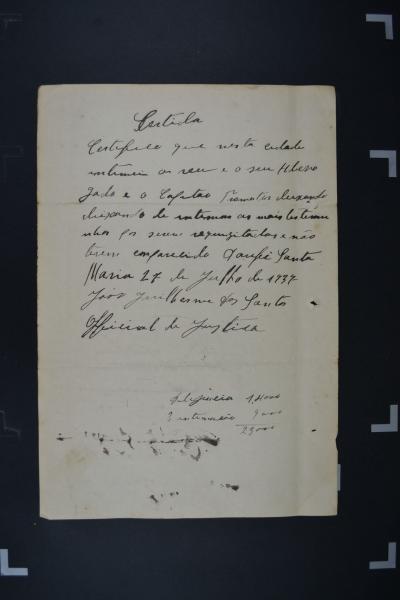 Certidão
Certifico que nesta cidade
intimei ao reu e o seu Advo
gado e o Capitão Promotor deixando
deixando de intimar as mais testemu
nhas por serem requizitadas e não
terem comparecido Doufé Santa
Maria 27 de Julho de 1937
João Guilherme dos Santos
Official de Justiça
Deligencia 14000
3 intimação 9000
23000